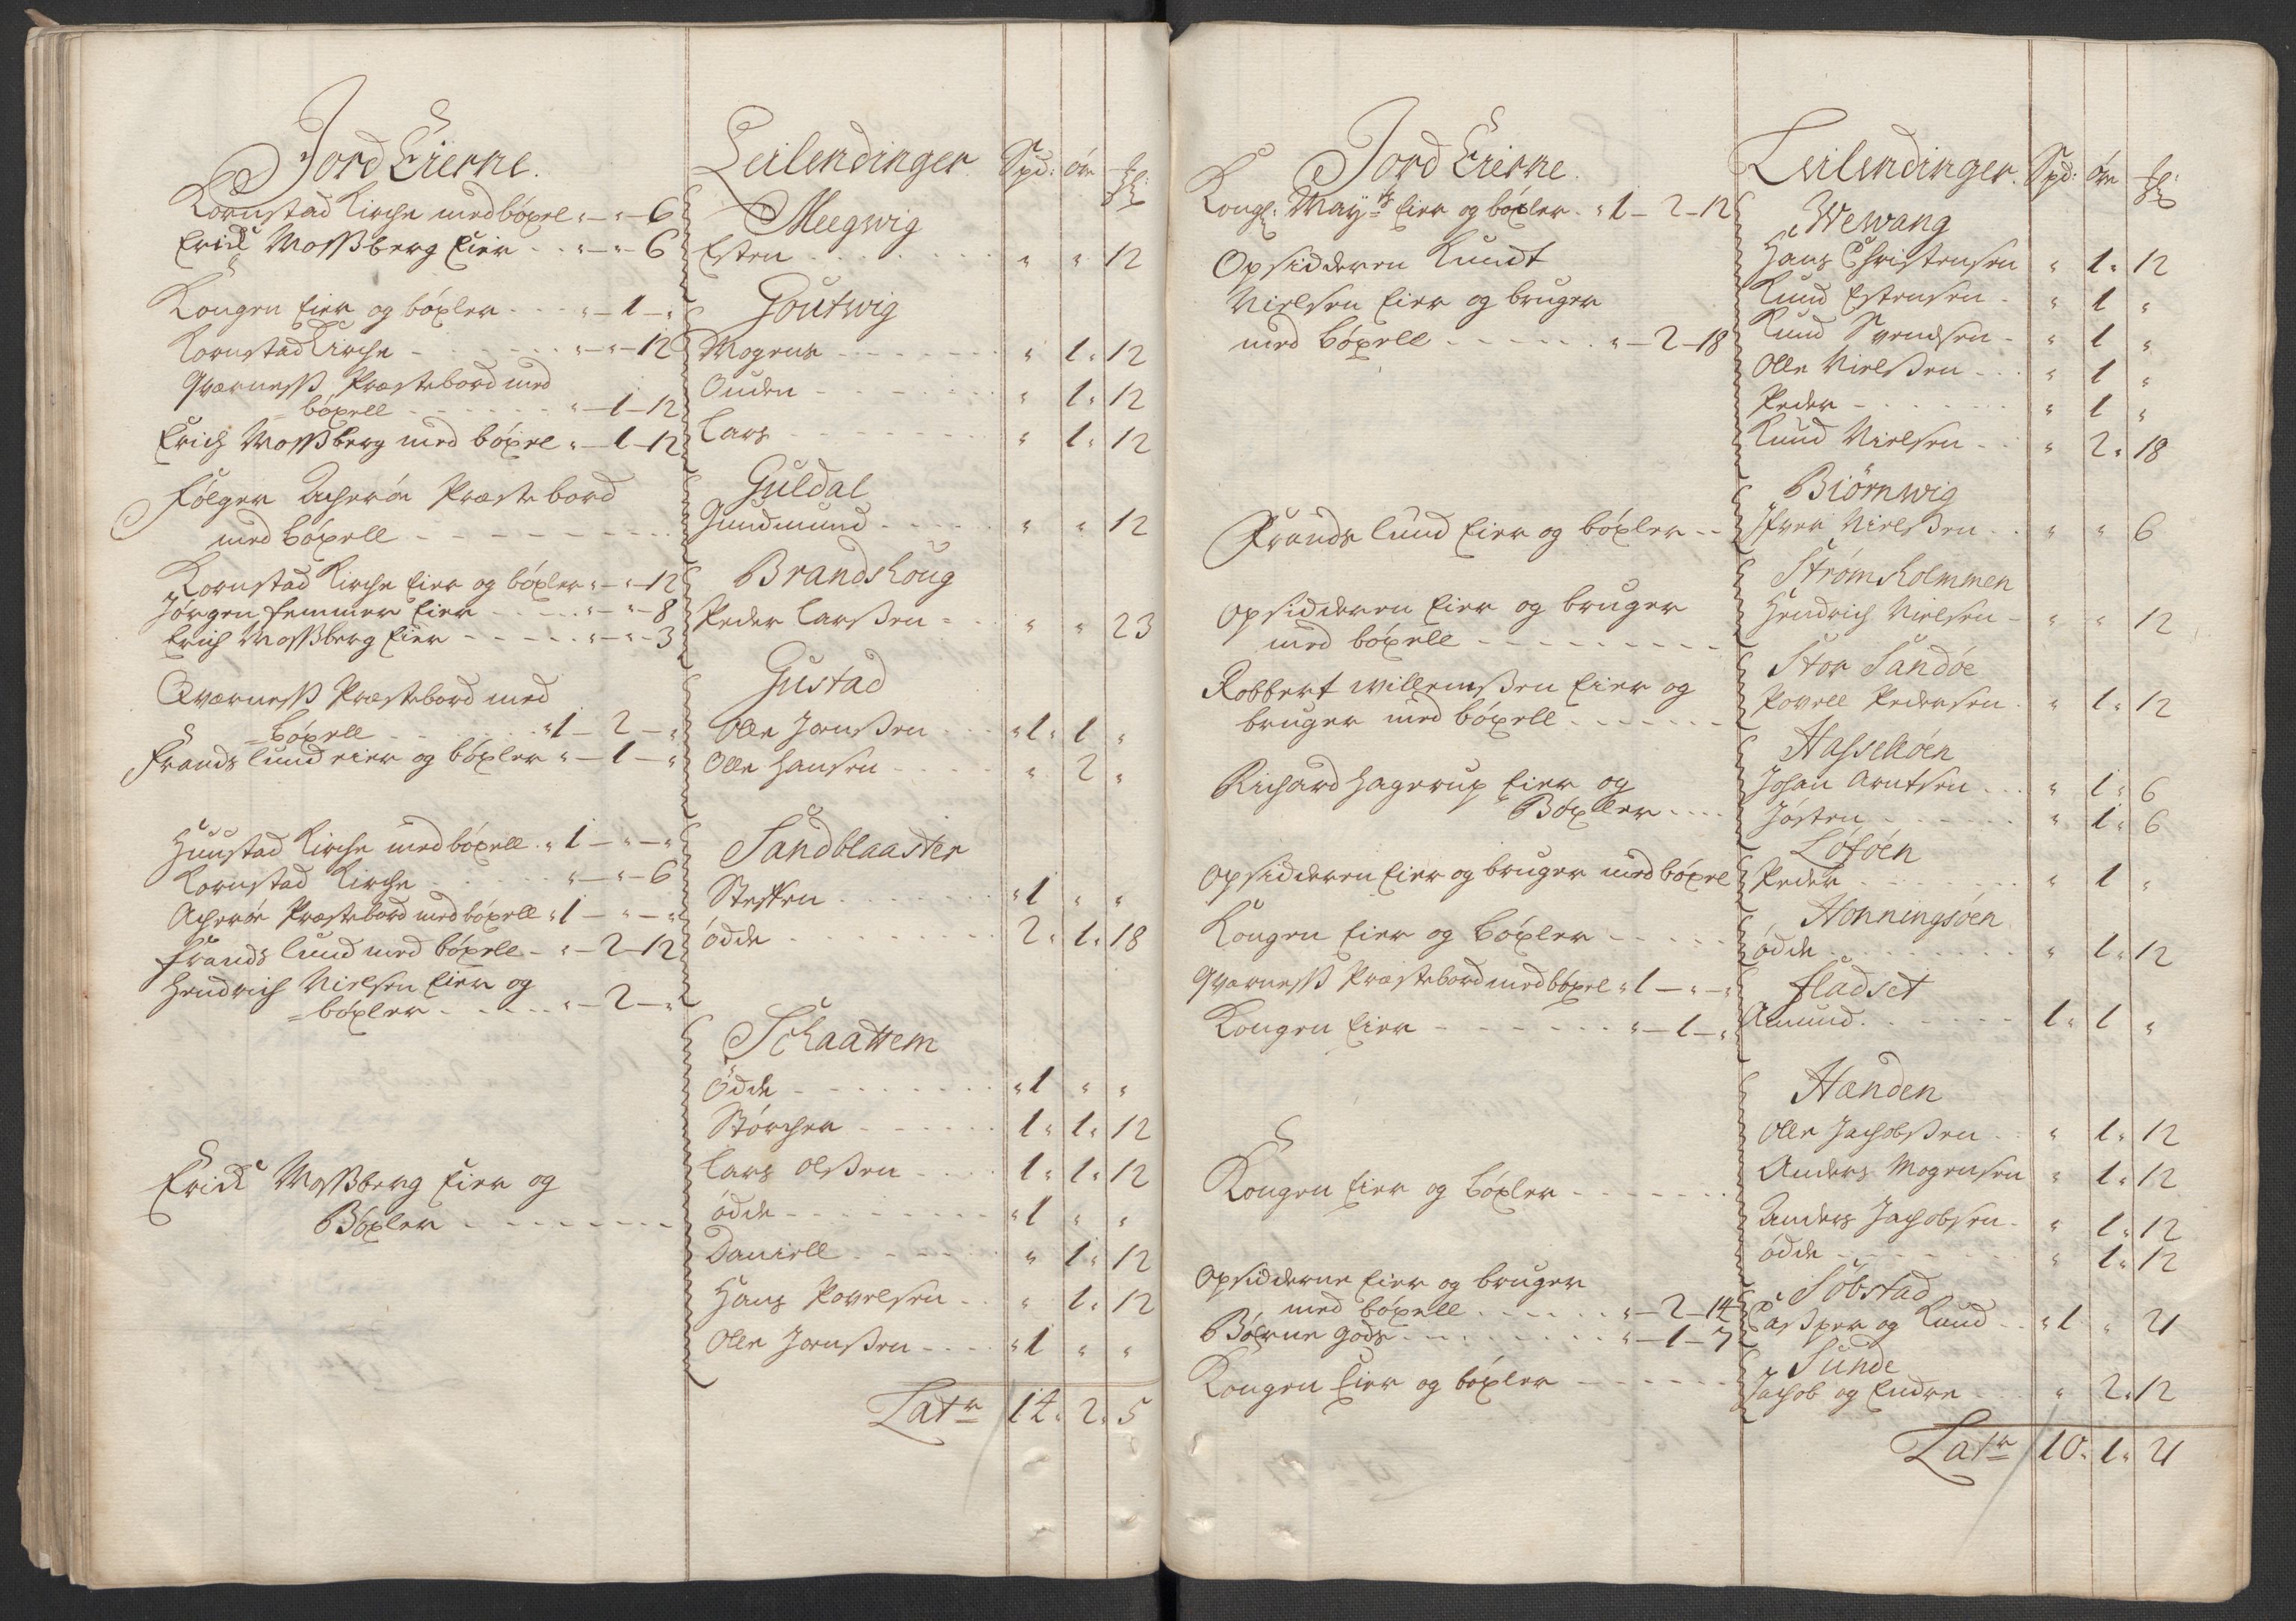 Jord Eierne.
Kornstad Kirche med böxel " - " - 6
Erich Mossberg Eier - - " - " - 6
Kongen Eier og böxler - - - " - 1 - "
Kornstad Kirche - - - - " - " - 12
Qværness Præstebord med
böxell - - - - - " - 1 - 12
Erich Mossberg med böxel " - 1 - 12
Følger Acherøe Præstebord
med böxell - - - - - - - -
Kornstad Kirche Eier og böxler " - " - 12
Jørgen femmer Eier - - - " - " - 8
Erich Mossberg Eier - - - - " - " - 3
Qværness Præstebord med
böxell - - - - " 1 - 2 - "
Frands lund eier og böxler " - 1 - "
Huustad Kirche med böxell " 1 - " - "
Kornstad Kirche - - - - " - " - 6
Acherøe Præstebord med böxell " 1 - " - "
Frands lund med böxell - " - 2 - 12
Hendrich Nielsen Eier og
böxler - - - - " - 2 - "
Erich Mossberg Eier og
Böxler - - - - - - -
Leilendinger. Spd: öre
Meegwig
Esten - - - - " " 12
Goutwig
Mogens - - - - " 1 " 12
Ouden - - - - " 1 " 12
Lars - - - - " 1 " 12
Guldal
Gundmund - - - - " " 12
Brandshoug
Peder Larssen - - " " 23
Gustad
Olle Jonssen - - " 1 " 1 "
Olle Hansen - - - " 2 "
Sandblaaster
Steffen - - - - " 1 " "
öedde - - - - 2 " 1 " 18
Schaattem
Ödde - - - - " 1 " "
Störcher - - - - 1 " 1 " 12
Lars Olssen - - - 1 " 1 " 12
ödde - - - - " 1 " "
Daniell - - - - " 1 " 12
Hans Povelsen - - " 1 " 12
Olle Jonssen - - - " 1 " "
Latr 14 " 2 " 5
Jord Eierne.
Kongl: Mayts Eier og böxler - " 1 - 2 - 12
Opsidderen Knudt
Nielsen Eier og bruger
med böxell - - - - - " - 2 - 18
Frands lund Eier og böxler - -
Opsidderen Eier og bruger
med böxell - - - - - - -
Robbert Willemssen Eier og
bruger med böxell - - - - -
Richard Hagerup Eier og
Böxller - - - -
Opsidderen Eier og bruger med böxel
Kongen Eier og böxler - - - -
Qværness Præstebord med böxel " 1 - " - "
Kongen Eier - - - - - - " - 1 - "
Kongen Eier og böxler - - - - -
Opsidderne Eier og bruger
med böxell - - - - " - 2 - 14
Börne gods - - - - " - 1 - 7
Kongen Eier og böxler - - - - -
Leilendinger. Spd: öre
Wewang
Hans Christensen " 1 " 12
Knud Estensen - " 1 "
Knud Svendsen - " 1 "
Olle Nielssen - - " 1 "
Peder - - - - " 1 "
Knud Nielsen - - " 2 " 18
Biörnwig
Ifver Nielssen - - " " 6
Strømsholmmen
Hendrich Nielsen - " " 12
Stor Sandöe
Povell Pedersen - " 1 " 12
Hasseløen
Johan Arntsen - - " 1 " 6
Jösten - - - - " 1 " 6
Löföen
Peder - - - - " 1 "
Honningsöen
ödde - - - - " 1 " 12
fladset
Amund - - - - 1 " 1 "
Hænden
Olle Jachobssen - - " 1 " 12
Anders Mogensen " 1 " 12
Anders Jachobsen - " 1 " 12
ödde - - - - " 1 " 12
Söbstad
Casper og Knud - - " 1 " 21
Sunde
Jachob og Endre - - " 2 " 12
Latr 10 " 1 " 21